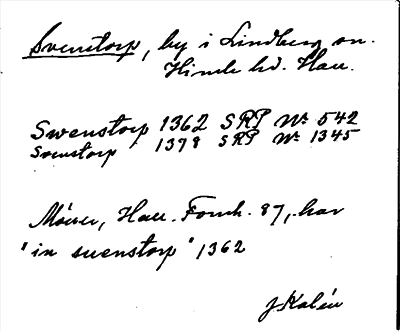 Svenstorp, by i Lindberg sn.
Himle hd. Hall.
Swenstorp 1362 SRP No 542
Svenstorp 1378 SRP No 1345
Möller, Hall. Fornh. 87, har
"in suenstorp" 1362
J Kalén